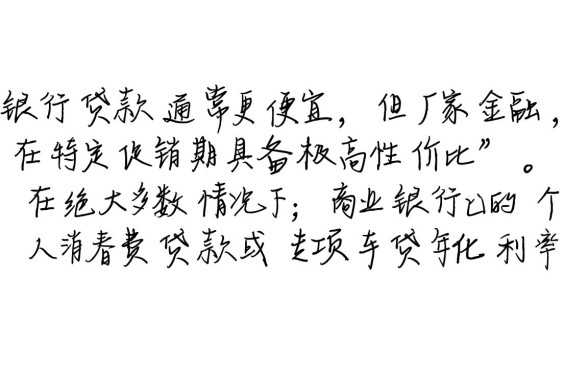 银行贷款通常更便宜，但厂家金融，
在特定促销期具备极高性价比”。
在绝大多数情况下；商业银行的个
人消春费贷款或专项车贷年化利率